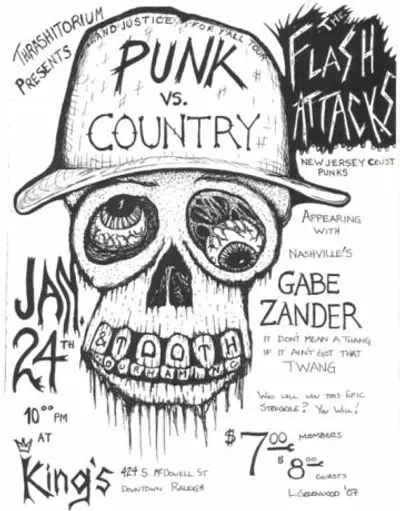 THRASHITORIUM
PRESENTS
...AND JUSTICE FOR Y'ALL TOUR
PUNK
VS.
COUNTRY
THE
FLASH
ATTACKS
NEW JERSEY CRUST
PUNKS
APPEARING
WITH
NASHVILLE'S
GABE
ZANDER
IT DON'T MEAN A THANG
IF IT AIN'T GOT THAT
TWANG
WHO WILL WIN THIS EPIC
STRUGGLE? YOU WILL!
& TOOTH
JAN.
24TH
10:00 PM
AT
King's
424 S. McDOWELL ST
DOWNTOWN RALEIGH
$7.00 MEMBERS
$8.00 GUESTS
L. GREENWOOD '07